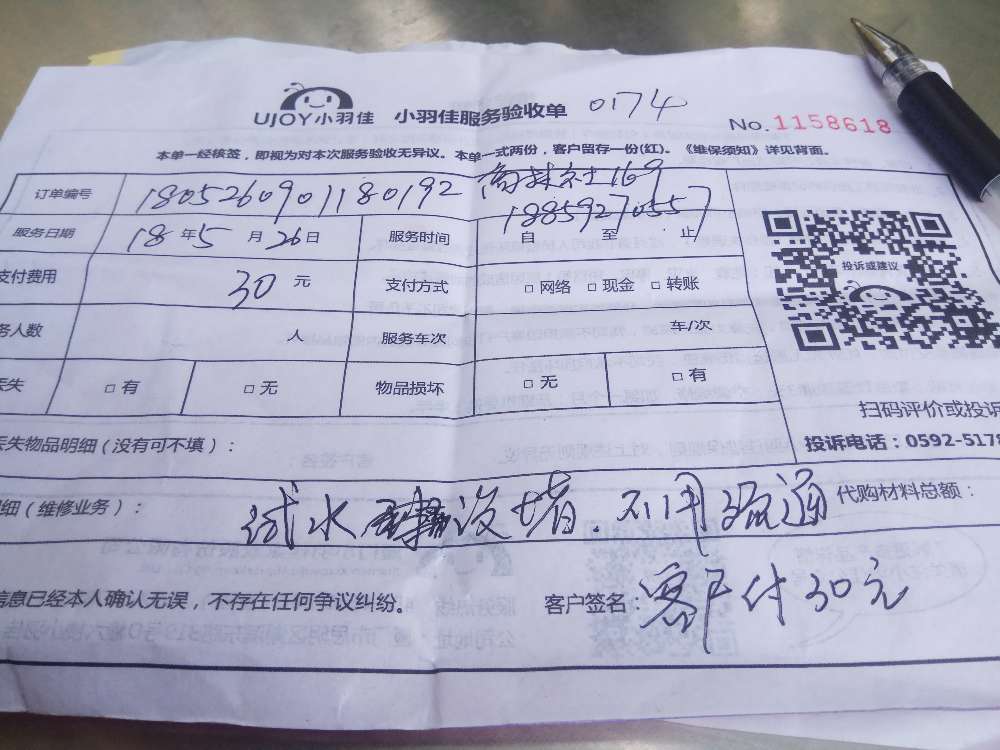 UJOY小羽佳 小羽佳服务验收单 0174
No.1158618
本单一经核签，即视为对本次服务验收无异议。本单一式两份，客户留存一份(红)。《维保须知》详见背面。
订单编号 1805260901180192 高林社169
18859270557
服务日期 18年5月26日 服务时间 自 至 止
支付费用 30元 支付方式 □网络 □现金 □转账
投诉或建议
务人数 人 服务车次 车/次
丢失 □有 □无 物品损坏 □无 □有
扫码评价或投诉
丢失物品明细(没有可不填)：
投诉电话：0592-5178
细(维修业务)： 试水 没堵 不用疏通 代购材料总额：
信息已经本人确认无误，不存在任何争议纠纷。 客户签名：客户付30元